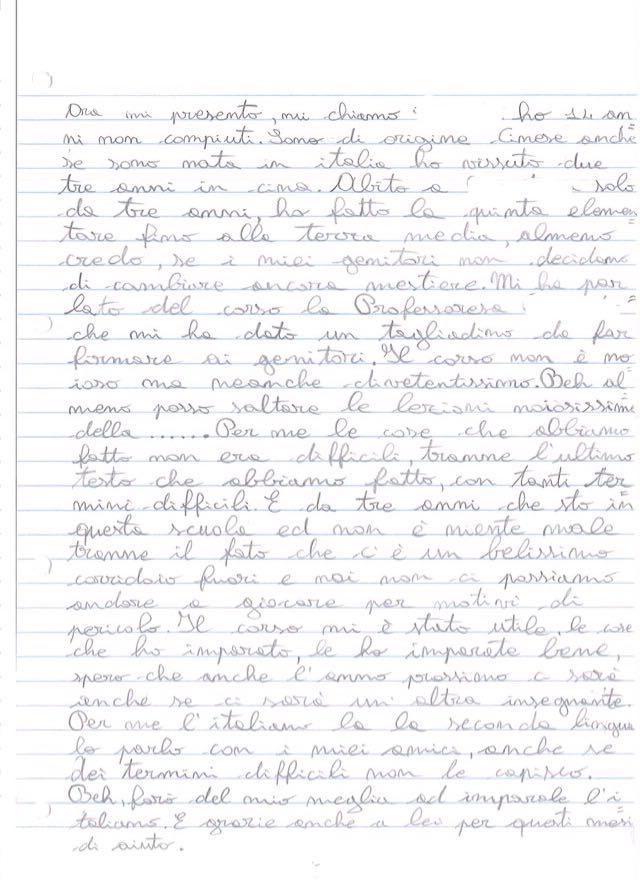 Ora mi presento, mi chiamo : ho 14 an
ni non compiuti. Sono di origine Cinese anche
se sono nata in italia ho vissuto due
tre anni in cina. Abito a ( solo
da tre anni, ho fatto la quinta elemen=
tare fino alla terza media, almeno
credo, se i miei genitori non decidono
di cambiare ancora mestiere. Mi ha par
lato del corso la Professoresa
che mi ha dato un tagliadino da far
firmare ai genitori. Il corso non è no
ioso ma neanche divetentissimo. Beh al
meno posso saltare le lezioni noiosissime
della ...... Per me le cose che abbiamo
fatto non era difficili, tranne l'ultimo
testo che abbiamo fatto, con tanti ter
mini difficili. E da tre anni che sto in
questa scuola ed non è niente male
tranne il fato che c'è un belissimo
corridoio fuori e noi non ci possiamo
andare a giocare per motivi di
pericolo. Il corso mi è stato utile, le cose
che ho imparato, le ho imparate bene,
spero che anche l'anno prossimo c sarà
anche se ci sarà un'altra insegnante.
Per me l'italiano la la seconda lingua
lo parlo con i miei amici, anche se
dei termini difficili non le capisco.
Beh, farò del mio meglio ad imparale l'i
taliano. E grazie anche a lei per questi mesi
di aiuto.